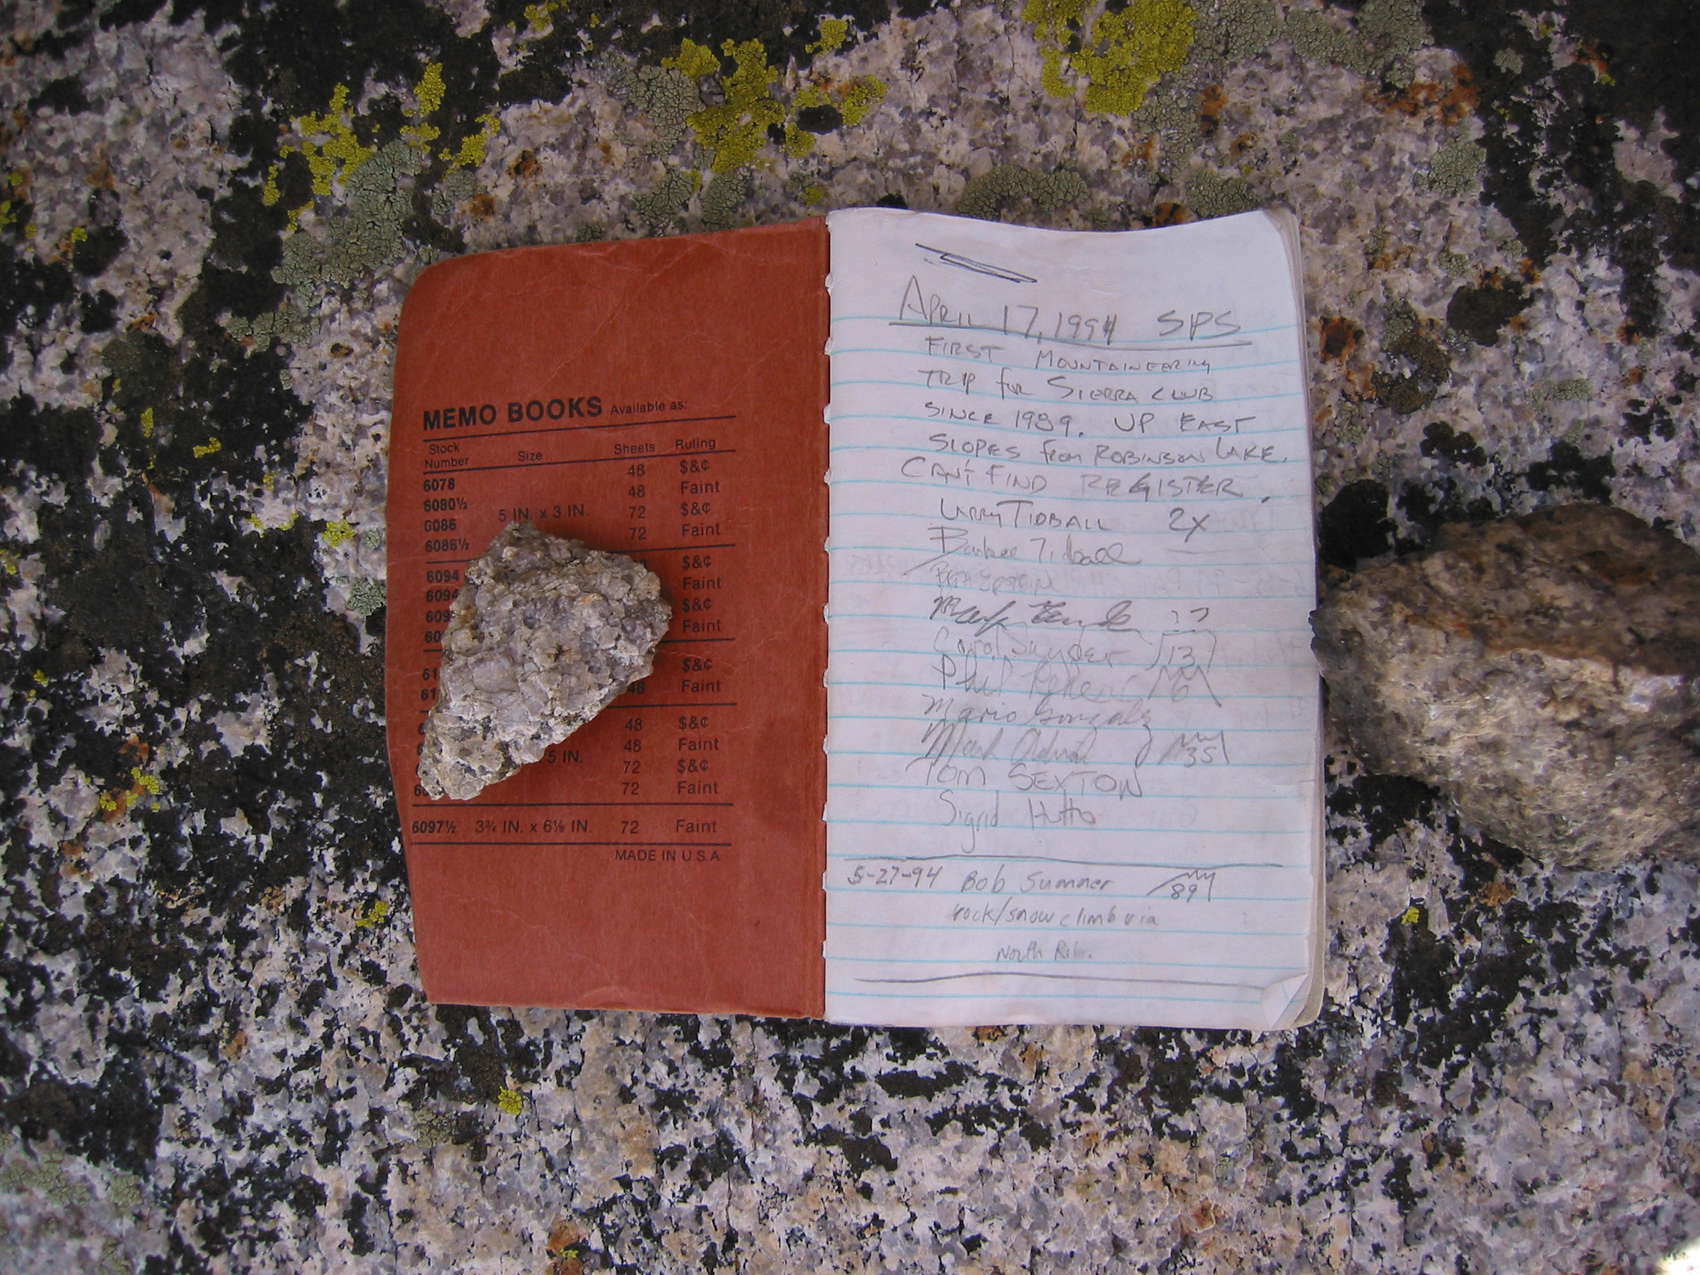 MEMO BOOKS Available as:
Stock Number Size Sheets Ruling
6078 48 $&¢
6080½ 48 Faint
6086 5 IN. x 3 IN. 72 $&¢
6086½ 72 Faint
6094 $&¢
6094 Faint
609 $&¢
60 Faint
61 $&¢
61 48 Faint
48 $&¢
48 Faint
5 IN. 72 $&¢
72 Faint
6097½ 3¾ IN. x 6⅛ IN. 72 Faint
MADE IN U.S.A
APRIL 17, 1994 SPS
FIRST MOUNTAINEERING
TRIP for SIERRA CLUB
SINCE 1989. UP EAST
SLOPES from ROBINSON LAKE.
CAN'T FIND REGISTER.
LARRY TIDBALL 2x
Barbee Tidball
Carol Snyder 13
Phil 6
Mario Gonzalez
Mark 35
TOM SEXTON
Sigrid Hutto
5-27-94 Bob Sumner 89
rock/snow climb via
North Rib.